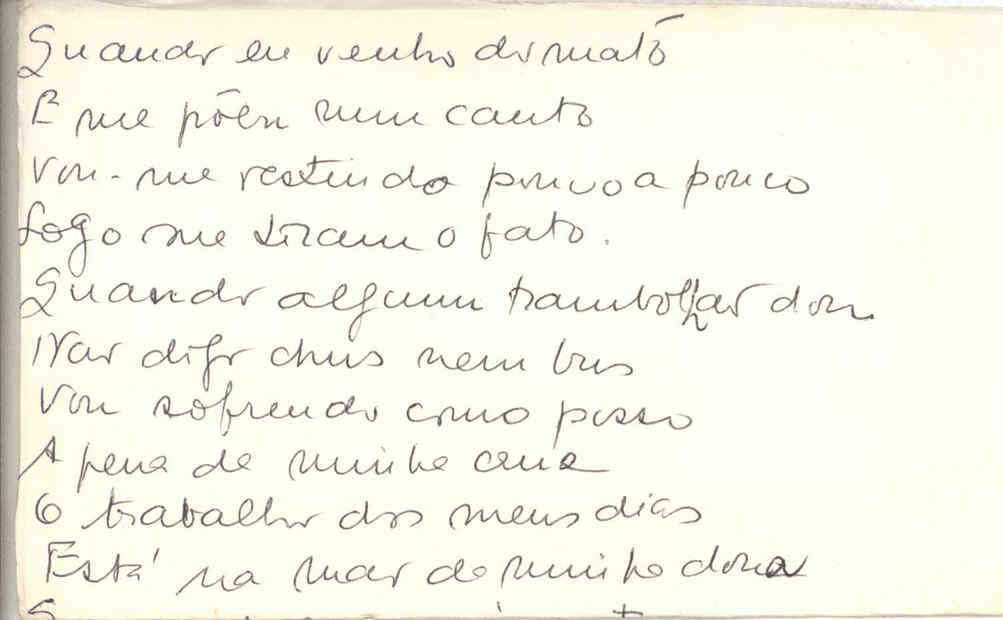 Quando eu venho do mato
E me põem num canto
Vou-me vestindo pouco a pouco
Logo me tiram o fato.
Quando algum trambolhão dou
Não digo chus nem bus
Vou sofrendo como posso
A pena de minha cruz
O trabalho dos meus dias
Está na mão de minha dona